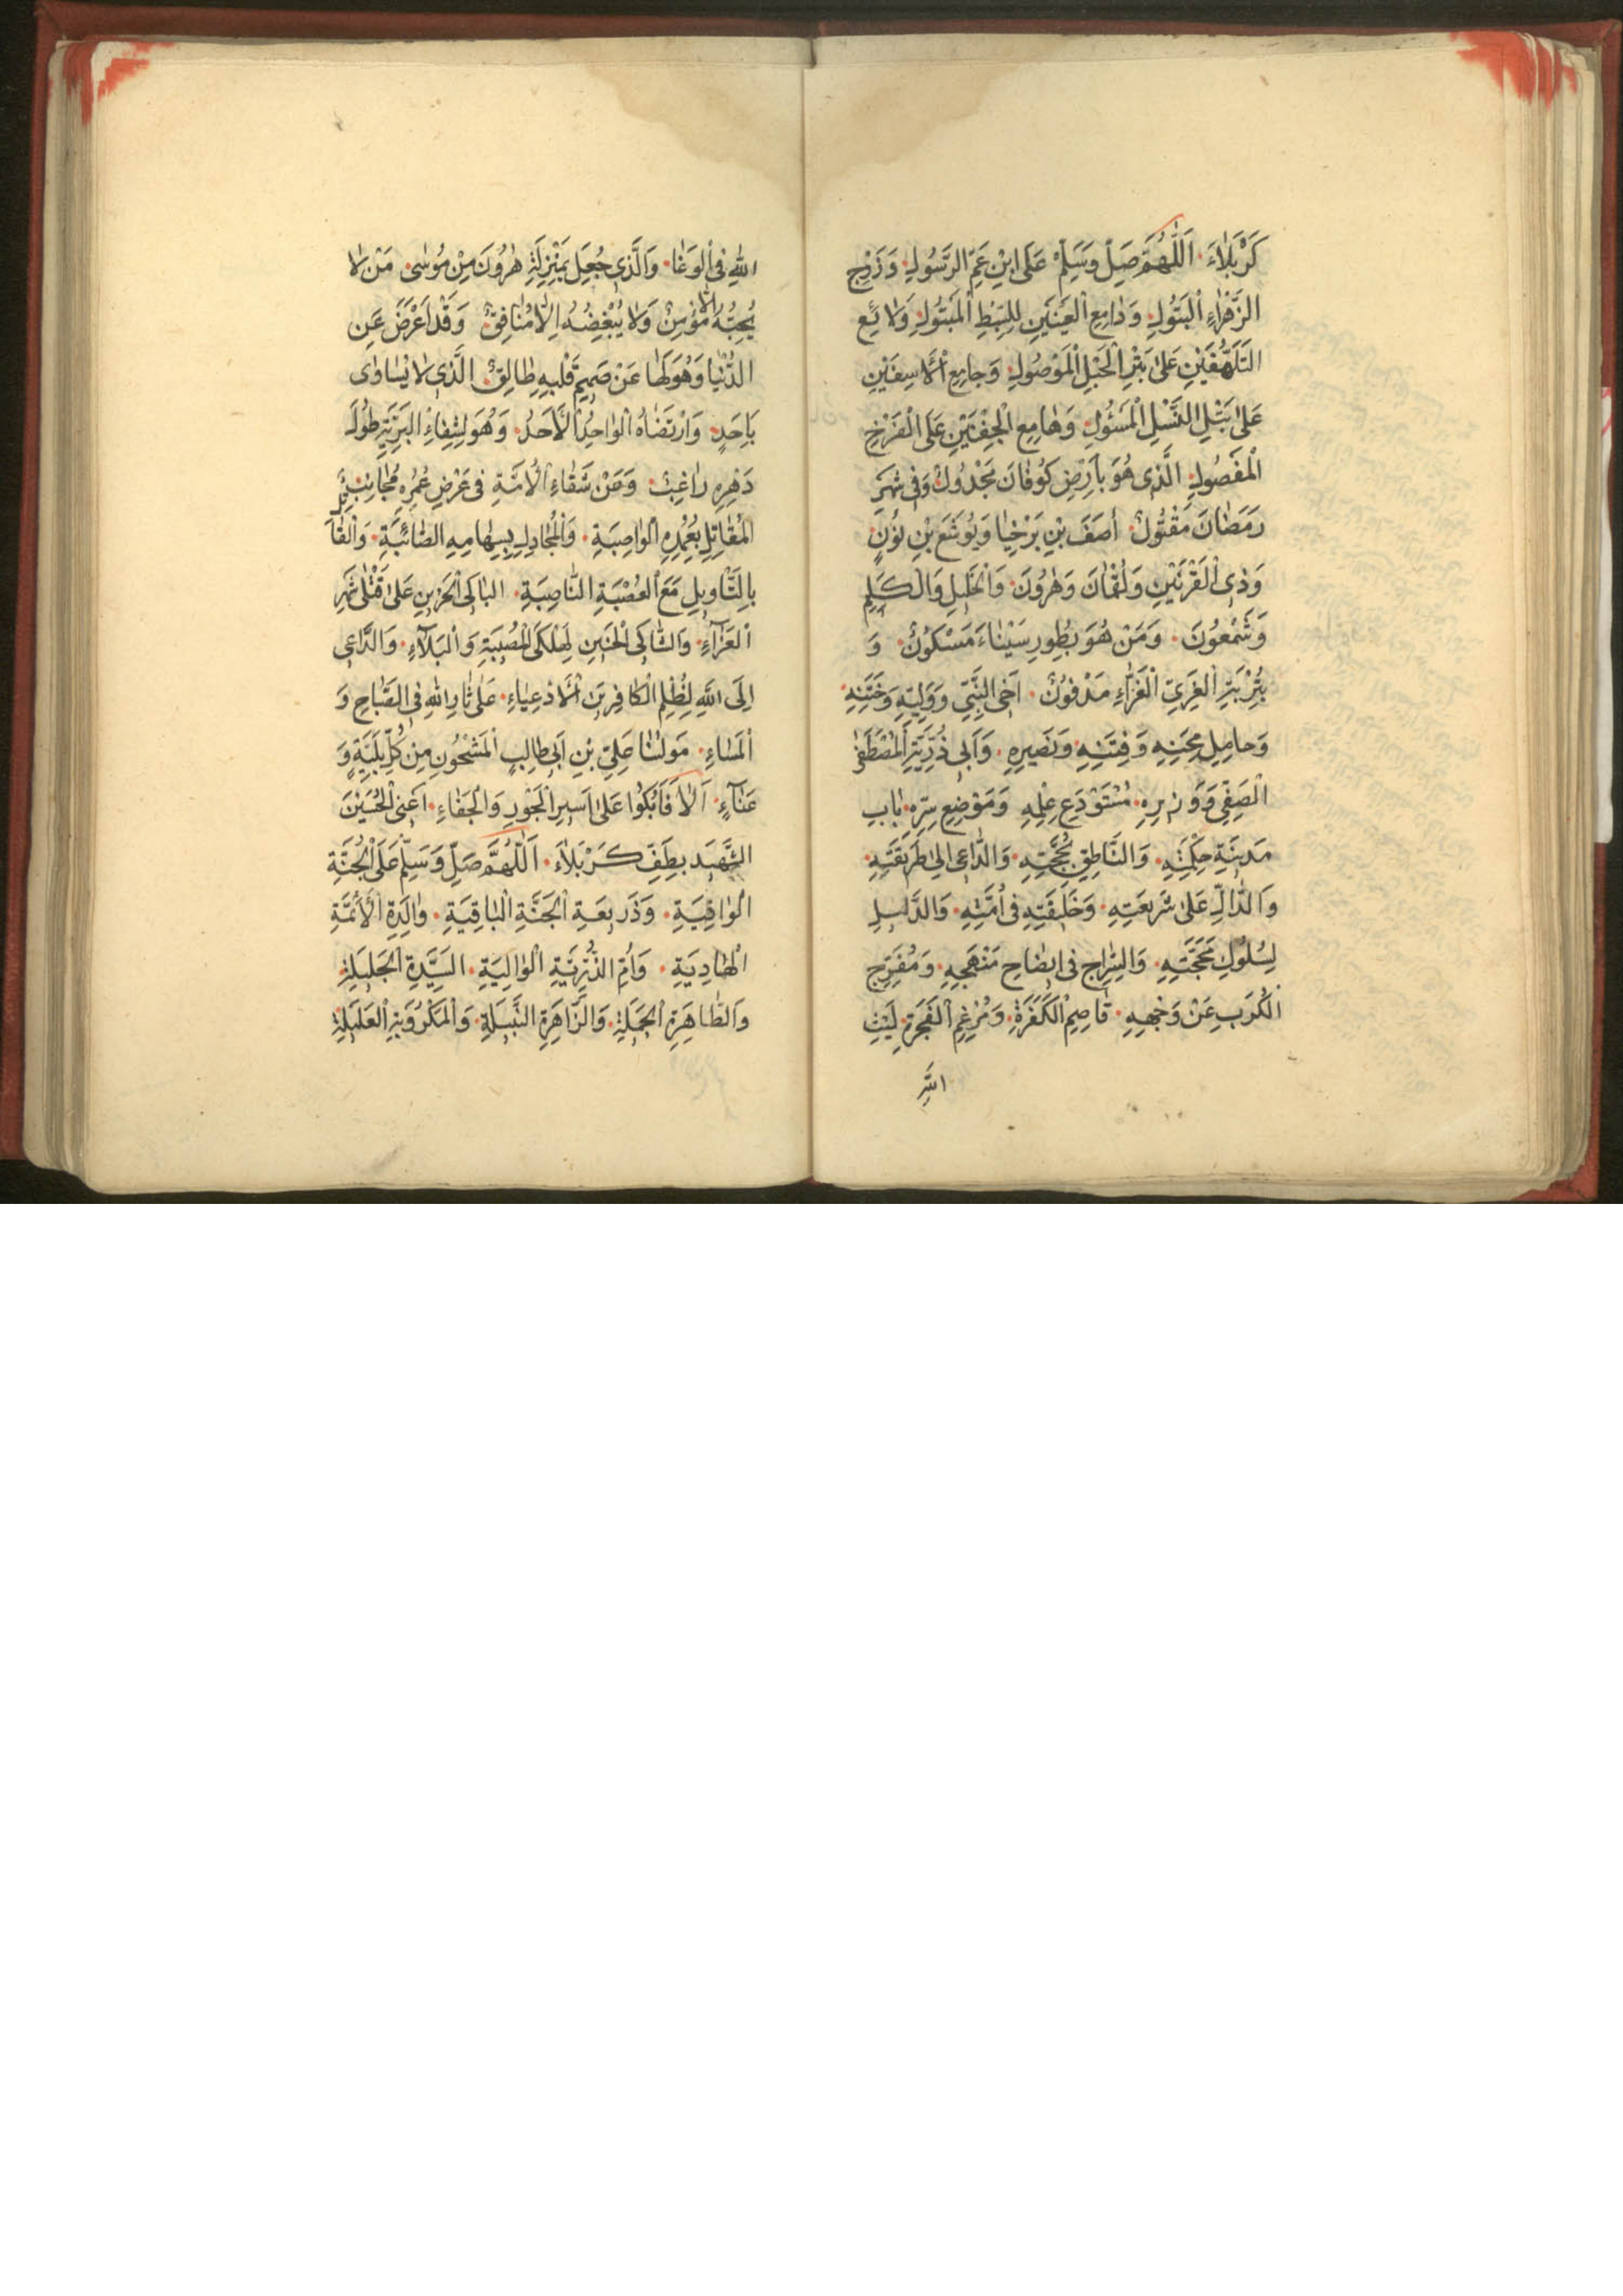 كَرْبَلَاءَ · اَللّٰهُمَّ صَلِّ وَسَلِّمْ عَلَى ابْنِ عَمِّ الرَّسُولِ · وَزَوْجِ
الزَّهْرَاءِ الْبَتُولِ · وَدَامِعِ الْعَيْنَيْنِ لِلسِّبْطِ الْمَبْتُولِ · وَلَائِعِ
التَّلَهُّفَيْنِ عَلَى بَتْرِ الْحَبْلِ الْمَوْصُولِ · وَجَامِعِ الْأَسِفَيْنِ
عَلَى بَتْلِ النَّسْلِ الْمَسْئُولِ · وَهَامِعِ الْجَفْنَيْنِ عَلَى الْفَرْخِ
الْمَفْصُولِ · الَّذِي هُوَ بِأَرْضِ كُوفَانَ مَجْدُولٌ وَفِي شَهْرِ
رَمَضَانَ مَقْتُولٌ · أَصَفَ بْنِ بَرْخِيَا وَيُوشَعَ بْنِ نُونٍ
وَذِي الْقَرْنَيْنِ وَلُقْمَانَ وَهٰرُونَ · وَالْخَلِيلِ وَالْكَلِيمِ
وَشَمْعُونَ · وَمَنْ هُوَ بِطُورِ سَيْنَاءَ مَسْكُونٌ · وَ
بِتُرْبَةِ الْغَرِيِّ الْغَرَّاءِ مَدْفُونٌ · اَخِي النَّبِيِّ وَوَلِيِّهِ وَخَتَنِهِ ·
وَحَامِلِ مِحَنِهِ وَفِتَنِهِ وَنَصِيرِهِ · وَاَبِي ذُرِّيَّةِ الْمُصْطَفٰى
الْصَفِيِّ وَوَزِيرِهِ · مُسْتَوْدَعِ عِلْمِهِ وَمَوْضِعِ سِرِّهِ · بَابِ
مَدِينَةِ حِكْمَتِهِ · وَالنَّاطِقِ بِحُجَّتِهِ · وَالدَّاعِي اِلٰى طَرِيقَتِهِ ·
وَالدَّالِّ عَلَى شَرِيعَتِهِ · وَخَلِيفَتِهِ فِي اُمَّتِهِ · وَالدَّلِيلِ
لِسُلُوكِ مَحَجَّتِهِ · وَالسِّرَاجِ فِي اِيضَاحِ مَنْهَجِهِ · وَمُفَرِّجِ
الْكُرَبِ عَنْ وَجْهِهِ · قَاصِمِ الْكَفَرَةِ · وَمُرْغِمِ الْفَجَرَةِ · لَيْثِ
اللّٰهِ
اللّٰهِ فِي الْوَغَا · وَالَّذِي جُعِلَ بِمَنْزِلَةِ هٰرُونَ مِنْ مُوسٰى · مَنْ لَا
يُحِبُّهُ اِلَّا مُؤْمِنٌ وَلَا يُبْغِضُهُ اِلَّا مُنَافِقٌ · وَقَدْ اَعْرَضَ عَنِ
الدُّنْيَا وَهُوَ لَهَا عَنْ صَمِيمِ قَلْبِهِ طَالِقٌ · الَّذِي لَا يُسَاوٰى
بِاَحَدٍ · وَارْتَضَاهُ الْوَاحِدُ الْأَحَدُ · وَهُوَ لِشِفَاءِ الْبَرِيَّةِ طُولَ
دَهْرِهِ رَاغِبٌ · وَمِنْ شَقَاءِ الْأُمَّةِ فِي عَرْضِ عُمُرِهِ مُجَانِبٌ ·
الْمُقَاتِلِ بِعُمُدِهِ الْوَاصِبَةِ · وَالْمُجَادِلِ بِسِهَامِهِ الصَّائِبَةِ · وَالْقَاتِلِ
بِالتَّأْوِيلِ مَعَ الْعُصْبَةِ النَّاصِبَةِ · الْبَاكِي الْحَزِينِ عَلَى قَتْلٰى شَهْرِ
الْعَزَاءِ · وَالشَّاكِي الْحَنِينِ لِهَلْكَى الْمُصِيبَةِ وَالْبَلَاءِ · وَالدَّاعِي
اِلَى اللّٰهِ لِظُلْمِ الْكَافِرِينَ الْأَدْعِيَاءِ · عَلٰى ثَارِ اللّٰهِ فِي الصَّبَاحِ وَ
الْمَسَاءِ · مَوْلٰنَا عَلِيِّ بْنِ اَبِي طَالِبٍ الْمَشْحُونِ مِنْ كُلِّ بَلِيَّةٍ وَ
عَنَاءٍ · اَلَا فَابْكُوا عَلَى اَسِيرِ الْجَوْرِ وَالْجَفَاءِ · اَعْنِي الْحُسَيْنَ
الشَّهِيدَ بِطَفِّ كَرْبَلَاءَ · اَللّٰهُمَّ صَلِّ وَسَلِّمْ عَلَى الْجُنَّةِ
الْوَاقِيَةِ · وَذَرِيعَةِ الْجَنَّةِ الْبَاقِيَةِ · وَالِدَةِ الْأَئِمَّةِ
الْهَادِيَةِ · وَاُمِّ الذُّرِّيَّةِ الْوَالِيَةِ · السَّيِّدَةِ الْجَلِيلَةِ ·
وَالطَّاهِرَةِ الْجَمِيلَةِ · وَالزَّاهِرَةِ النَّبِيلَةِ · وَالْمَكْرُوبَةِ الْعَلِيلَةِ ·